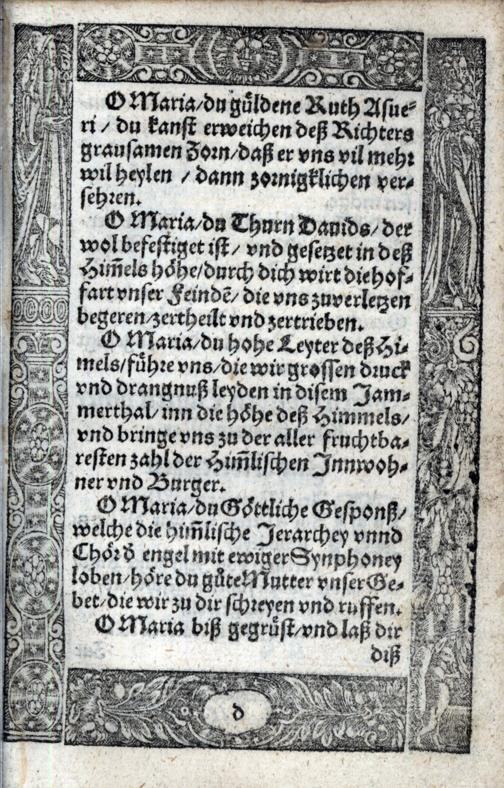 O Maria/du gůldene Ruth Asue⸗
ri / du kanst erweichen deß Richters
grausamen Zorn/daß er vns vil mehr
wil heylen / dann zornigklichen ver⸗
sehren.
O Maria/du Thurn Dauids/der
wol befestiget ist/ vnd gesetzet in deß
Him̃els höhe/durch dich wirt die hof⸗
fart vnser Feindẽ/die vns zuverletzen
begeren/zertheilt vnd zertrieben.
O Maria/du hohe Leyter deß Hi⸗
mels/führe vns/die wir grossen druck
vnd drangnuß leyden in disem Jam⸗
merthal/inn die höhe deß Himmels/
vnd bringe vns zu der aller fruchtba⸗
resten zahl der Him̃lischen Innwoh⸗
ner vnd Burger.
O Maria/du Göttliche Gesponß/
welche die him̃lische Jerarchey vnnd
Chör d̕ engel mit ewiger Synphoney
loben/höre du gůte Mutter vnser Ge⸗
bet/die wir zu dir schreyen vnd ruffen.
O Maria biß gegrüst/vnd laß dir
diß
d